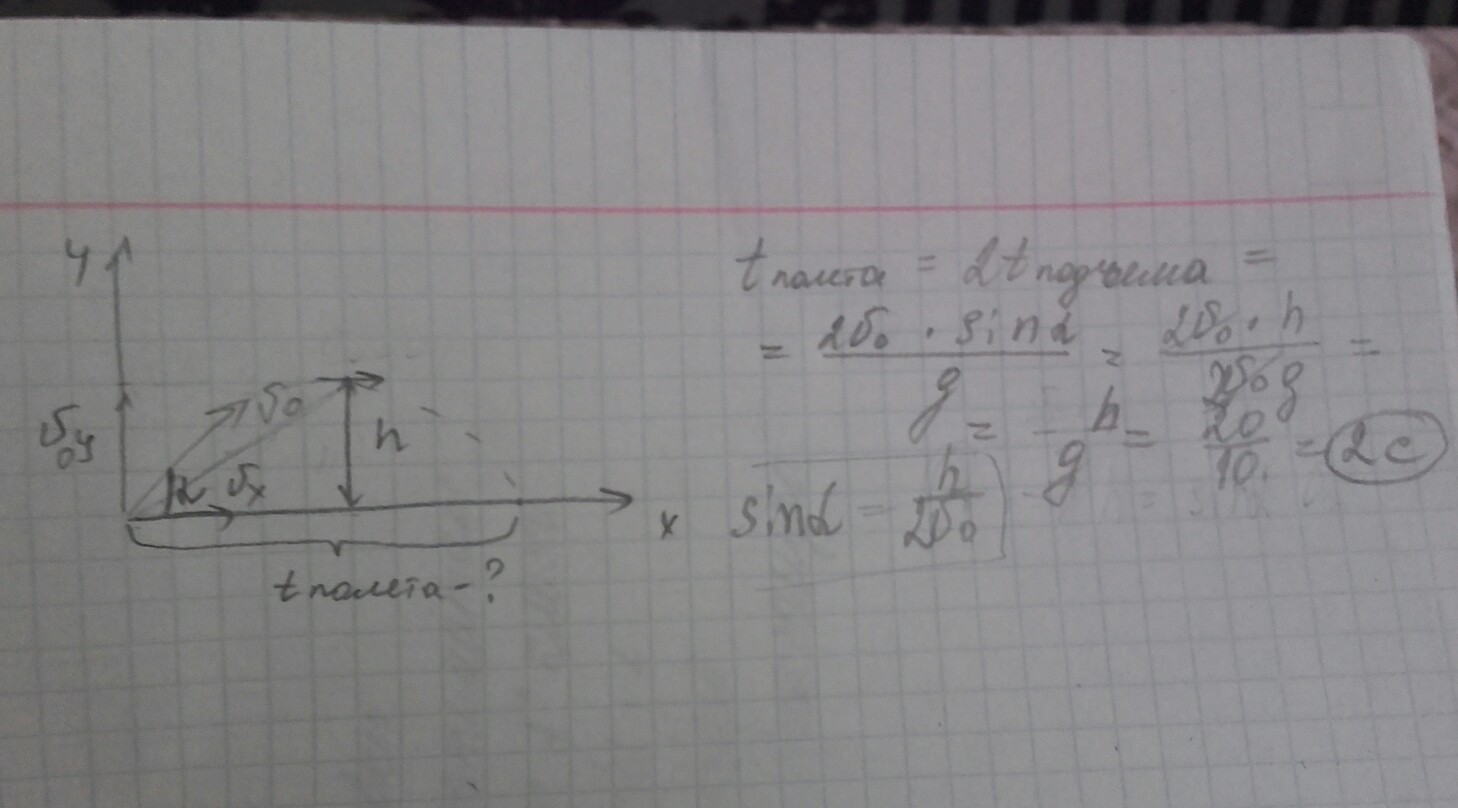 y
υ₀
υ₀y
h
α υₓ
x
t полёта - ?
t полёта = 2t подъёма =
= 2υ₀ · sin α / g = 2υ₀ · h / 2υ₀g =
= h / g = 20 / 10 = 2c
sin α = h / 2υ₀